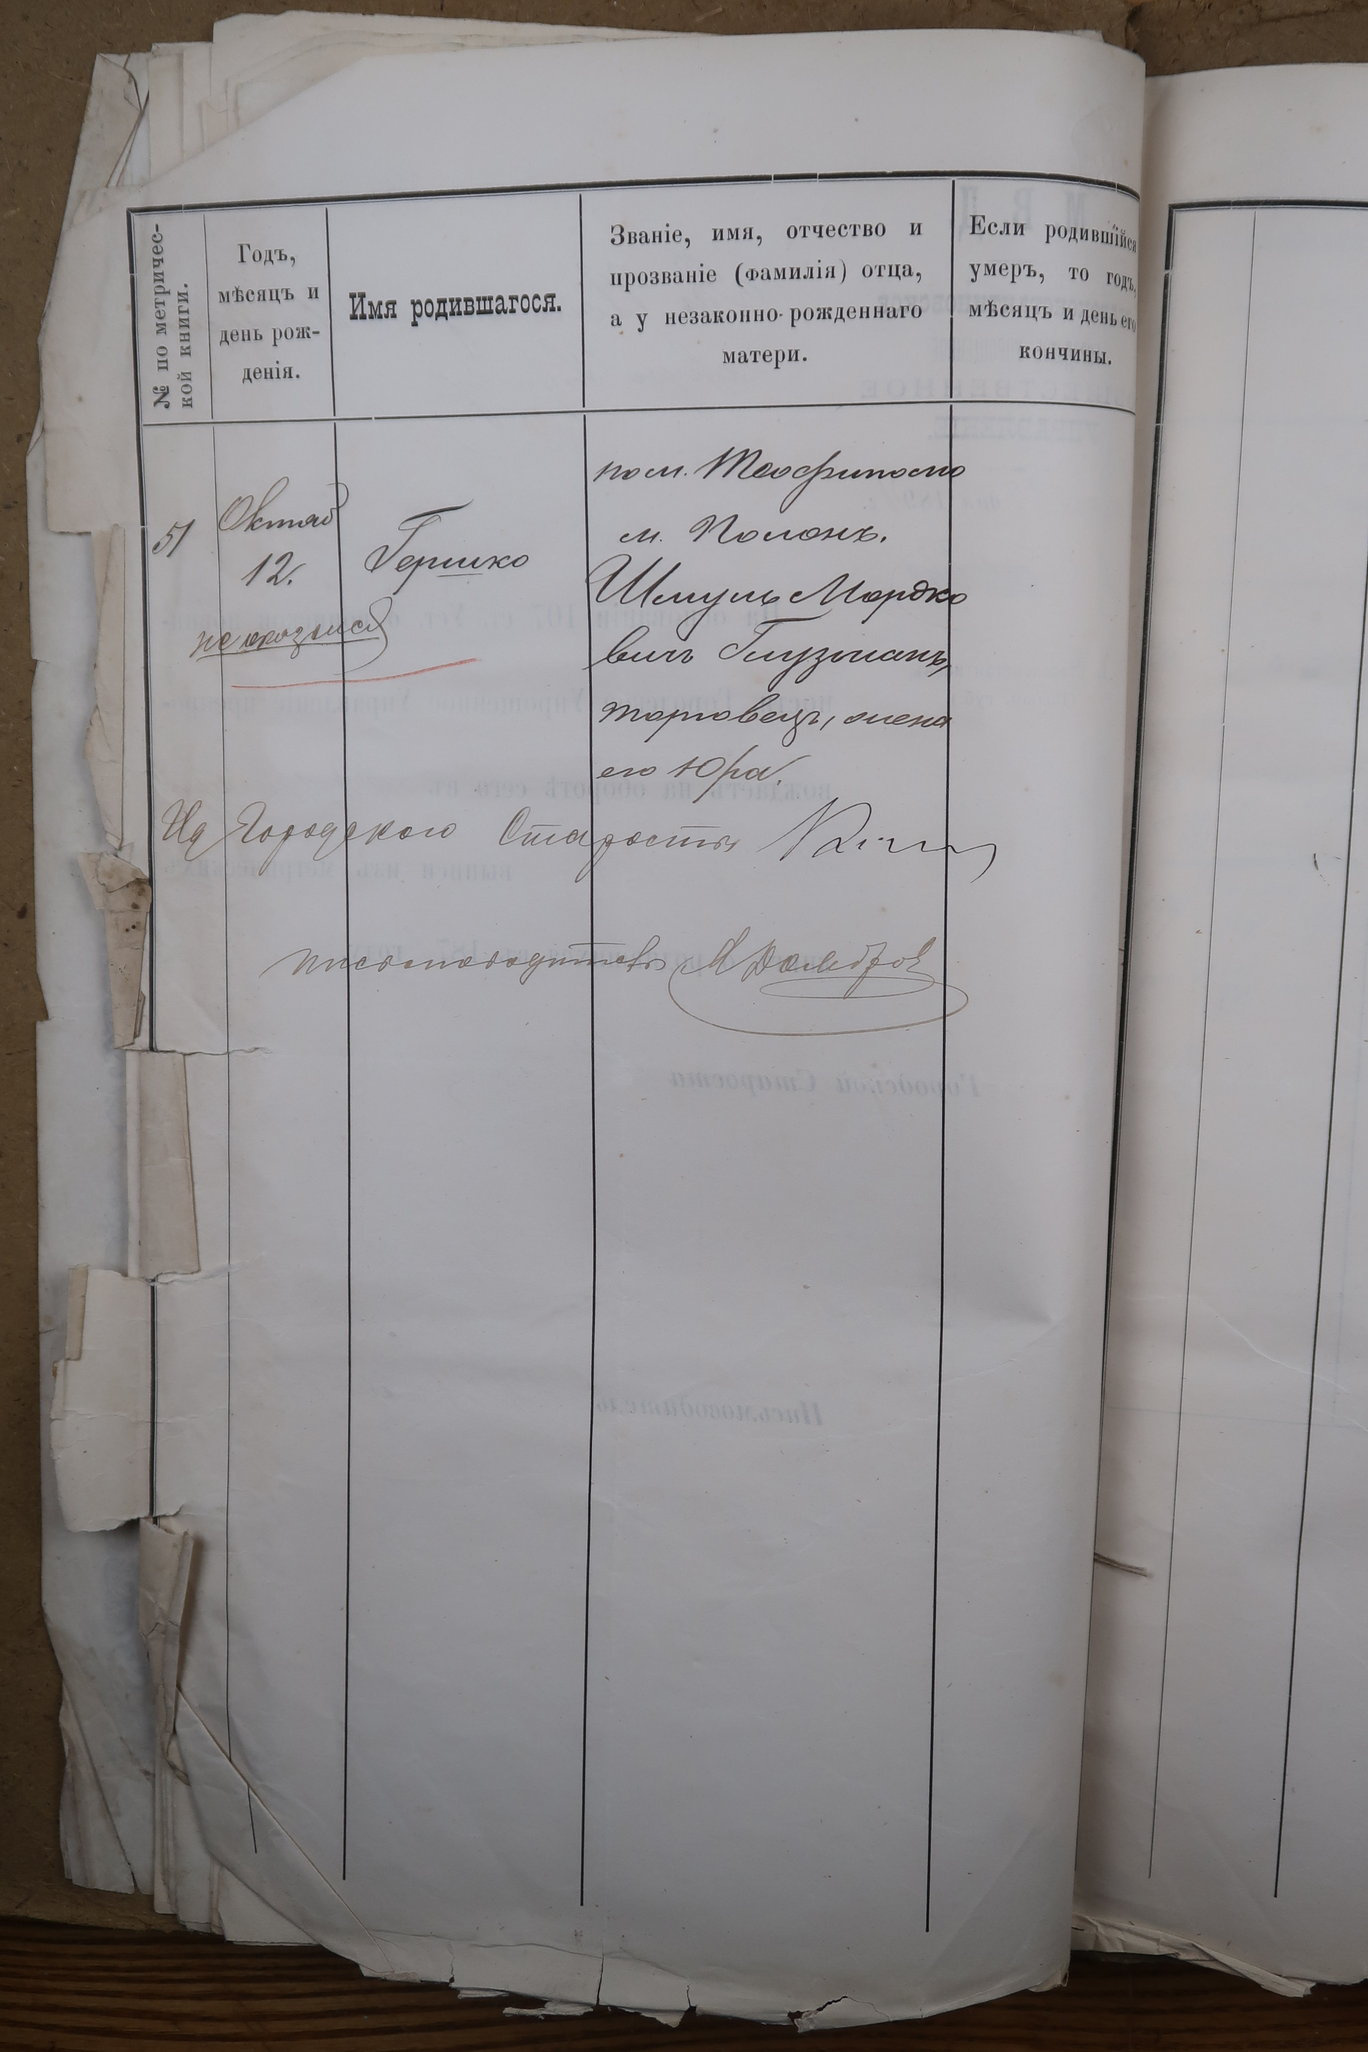 № по метричес-
кой книги.
Годъ,
мѣсяцъ и
день рож-
денія.
Имя родившагося.
Званіе, имя, отчество и
прозваніе (фамилія) отца,
а у незаконно-рожденнаго
матери.
Если родившійся
умеръ, то годъ,
мѣсяцъ и день его
кончины.
51
Октяб
12.
Гершко
не оказался
пом. Теофипольс
м. Полонъ.
Шмуль Мордко
вичъ Глузманъ,
торговецъ, жена
его Юра.
Городского Старосты
письмоводитель
Городской Староста
Письмоводитель